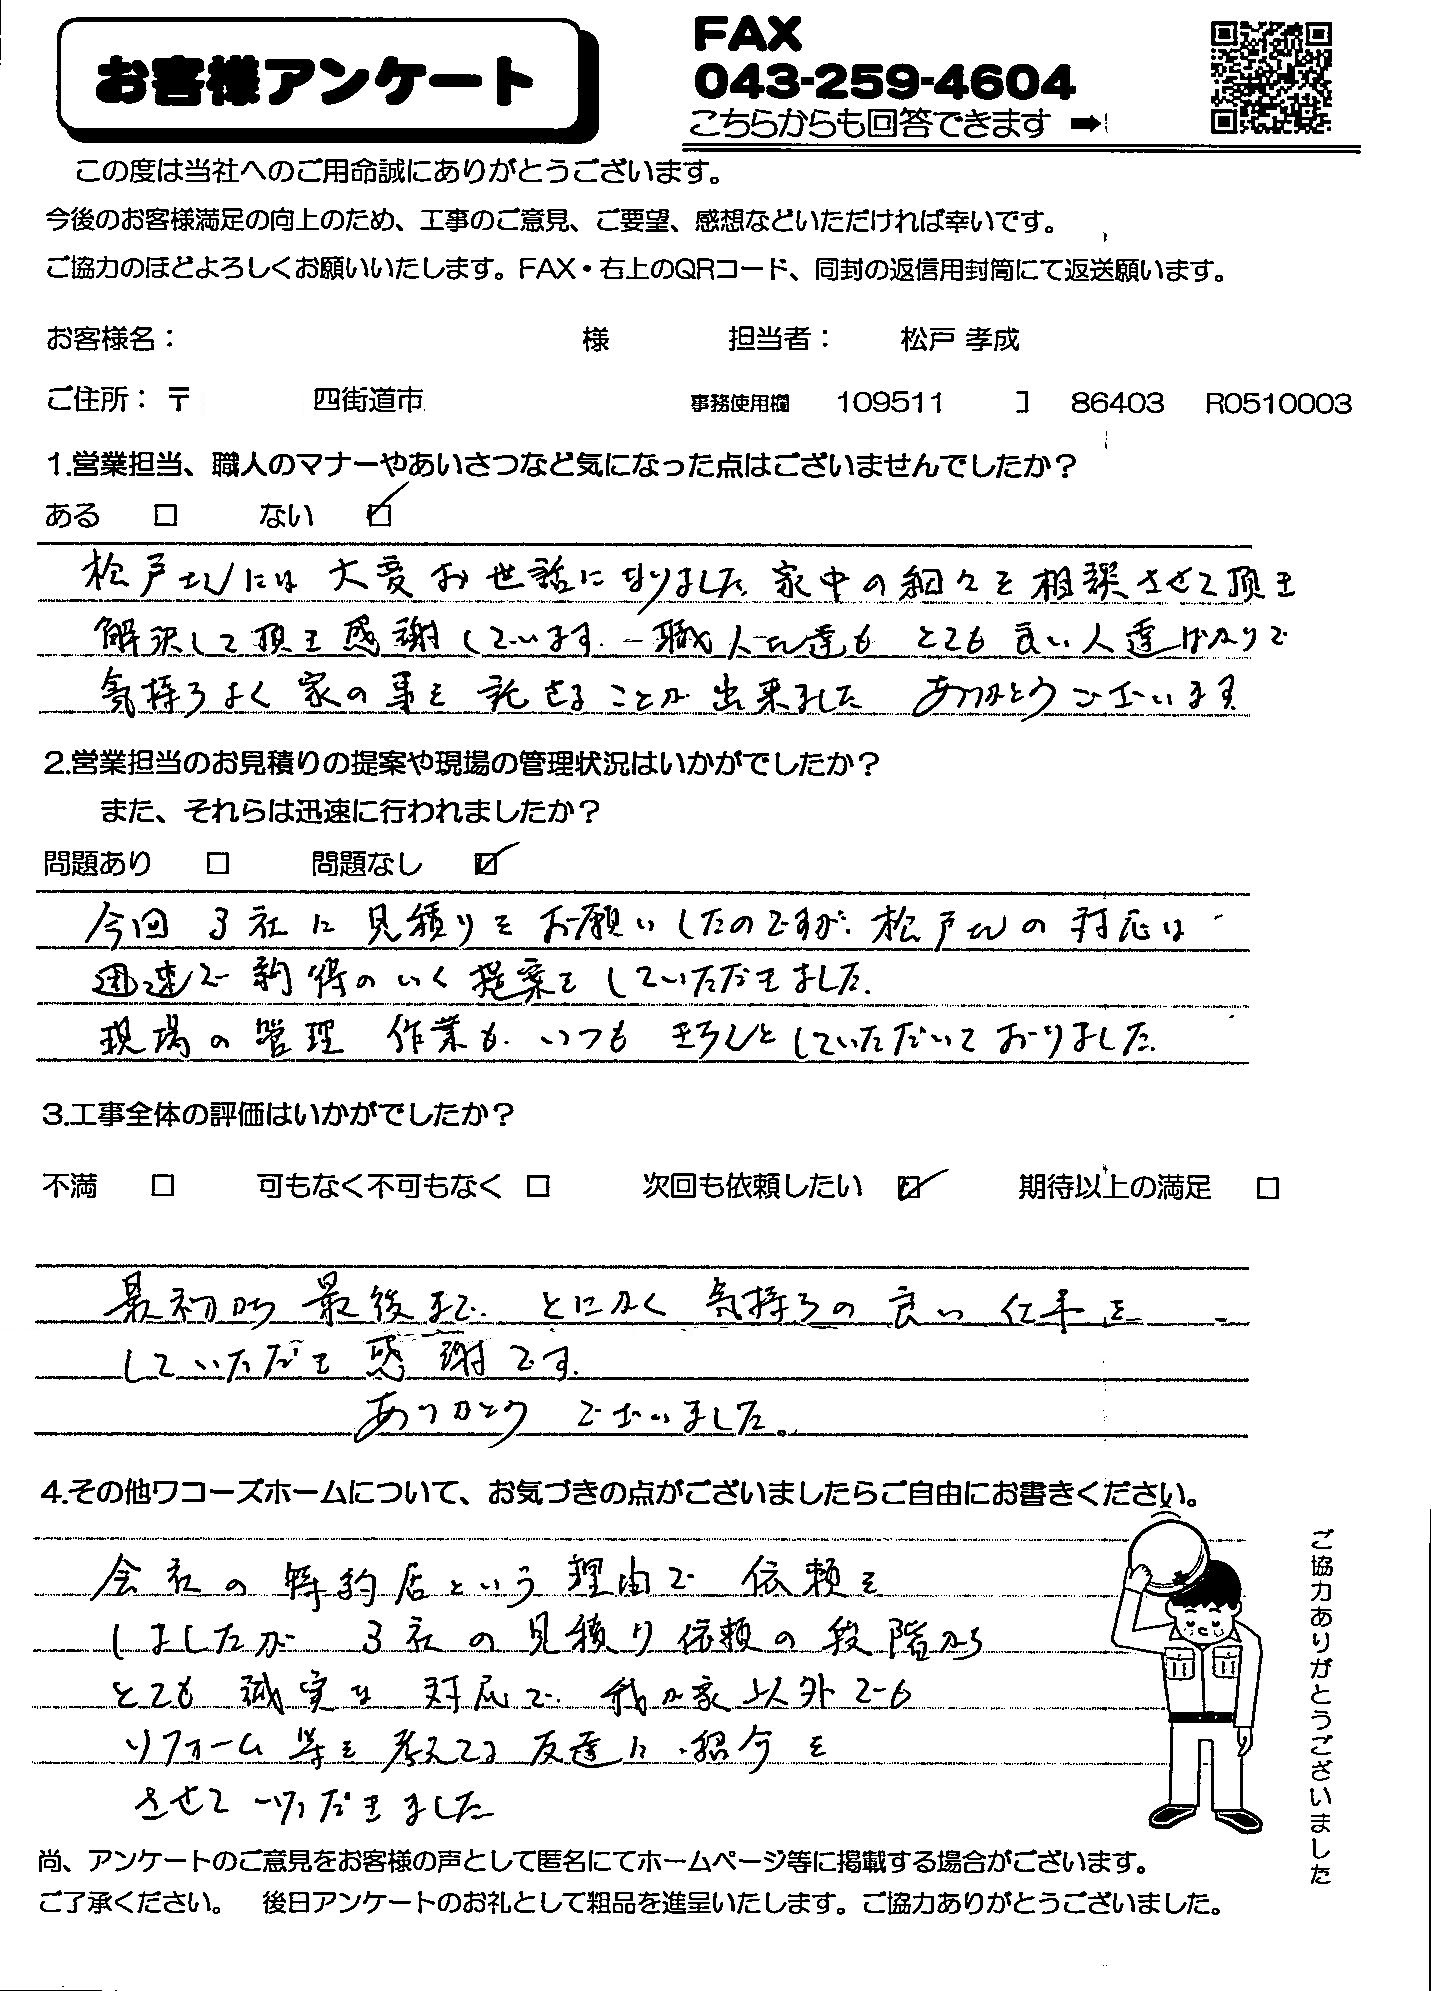 お客様アンケート
FAX
043-259-4604
こちらからも回答できます ➡
この度は当社へのご用命誠にありがとうございます。
今後のお客様満足の向上のため、工事のご意見、ご要望、感想などいただければ幸いです。
ご協力のほどよろしくお願いいたします。FAX・右上のQRコード、同封の返信用封筒にて返送願います。
お客様名： 様 担当者： 松戸 孝成
ご住所：〒 四街道市 事務使用欄 109511 コ 86403 R0510003
1.営業担当、職人のマナーやあいさつなど気になった点はございませんでしたか？
ある □ ない ☑
松戸さんには大変お世話になりました。家中の細々を相談させて頂き
解決して頂き感謝しています。職人さん達もとても良い人達ばかりで
気持ちよく家の事を託せることが出来ました ありがとうございます
2.営業担当のお見積りの提案や現場の管理状況はいかがでしたか？
また、それらは迅速に行われましたか？
問題あり □ 問題なし ☑
今回3社に見積りをお願いしたのですが、松戸さんの対応は
迅速で納得のいく提案をしていただきました。
現場の管理 作業も、いつもきちんとしていただいておりました。
3.工事全体の評価はいかがでしたか？
不満 □ 可もなく不可もなく □ 次回も依頼したい ☑ 期待以上の満足 □
最初から最後まで、とにかく気持ちの良い仕事を
していただき感謝です。
ありがとうございました。
4.その他ワコーズホームについて、お気づきの点がございましたらご自由にお書きください。
会社の特約店という理由で依頼を
しましたが 3社の見積り依頼の段階から
とても誠実な対応で、我が家以外でも
リフォーム等を考えてる友達に紹介を
させていただきました
ご協力ありがとうございました
尚、アンケートのご意見をお客様の声として匿名にてホームページ等に掲載する場合がございます。
ご了承ください。 後日アンケートのお礼として粗品を進呈いたします。ご協力ありがとうございました。